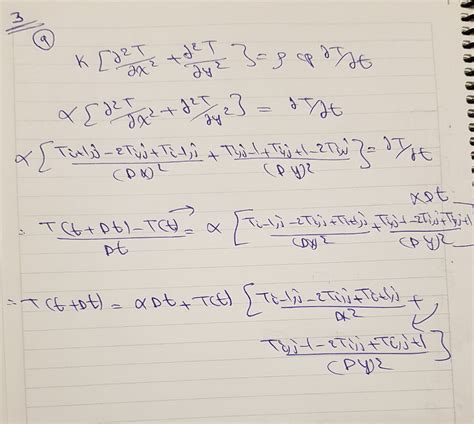 3
a
K [ ∂²T/∂x² + ∂²T/∂y² ] = ρ cp ∂T/∂t
α [ ∂²T/∂x² + ∂²T/∂y² ] = ∂T/∂t
α [ (Ti+1,j - 2Ti,j + Ti-1,j)/(Dx)² + (Ti,j-1 + Ti,j+1 - 2Ti,j)/(Dy)² ] = ∂T/∂t
αDt
∴ (T(t + Dt) - T(t))/Dt = α [ (Ti-1,j - 2Ti,j + Ti+1,j)/(Dx)² + (Ti,j-1 - 2Ti,j + Ti,j+1)/(Dy)² ]
∴ T(t + Dt) = αDt + T(t) [ (Ti-1,j - 2Ti,j + Ti+1,j)/Dx² +
(Ti,j-1 - 2Ti,j + Ti,j+1)/(Dy)² ]